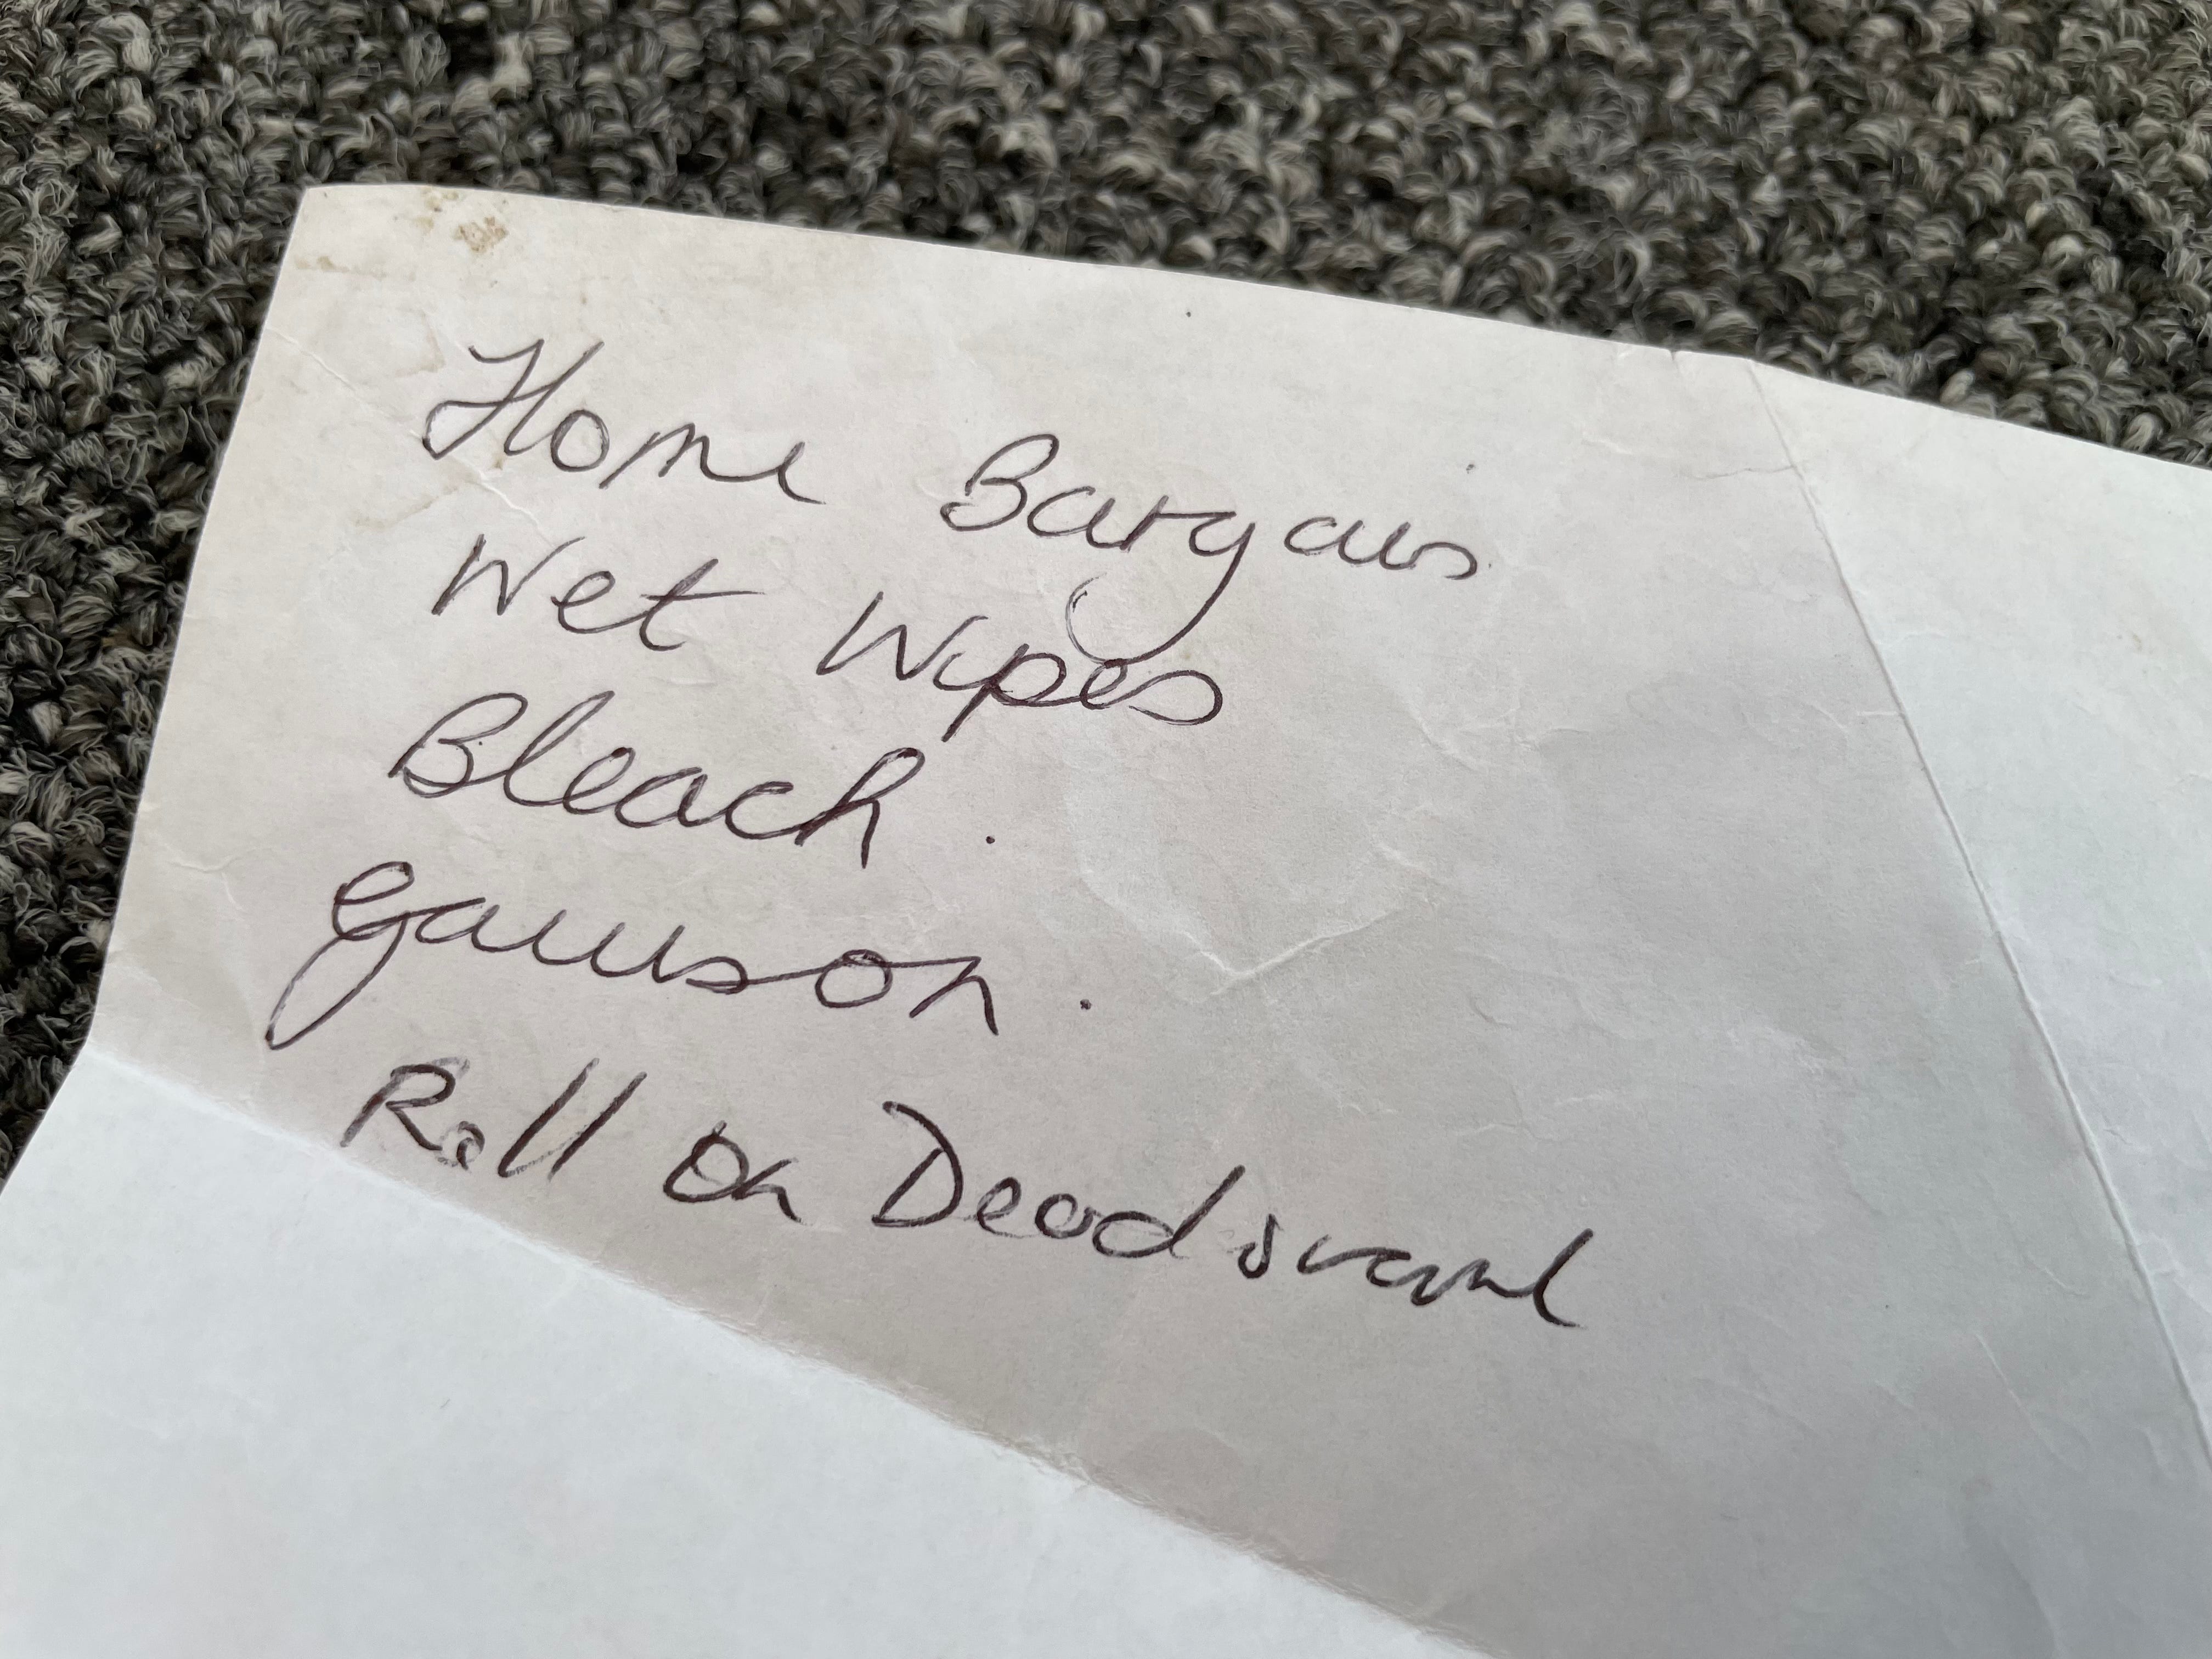 Home Bargains
Wet Wipes
Bleach.
Roll On Deodorant